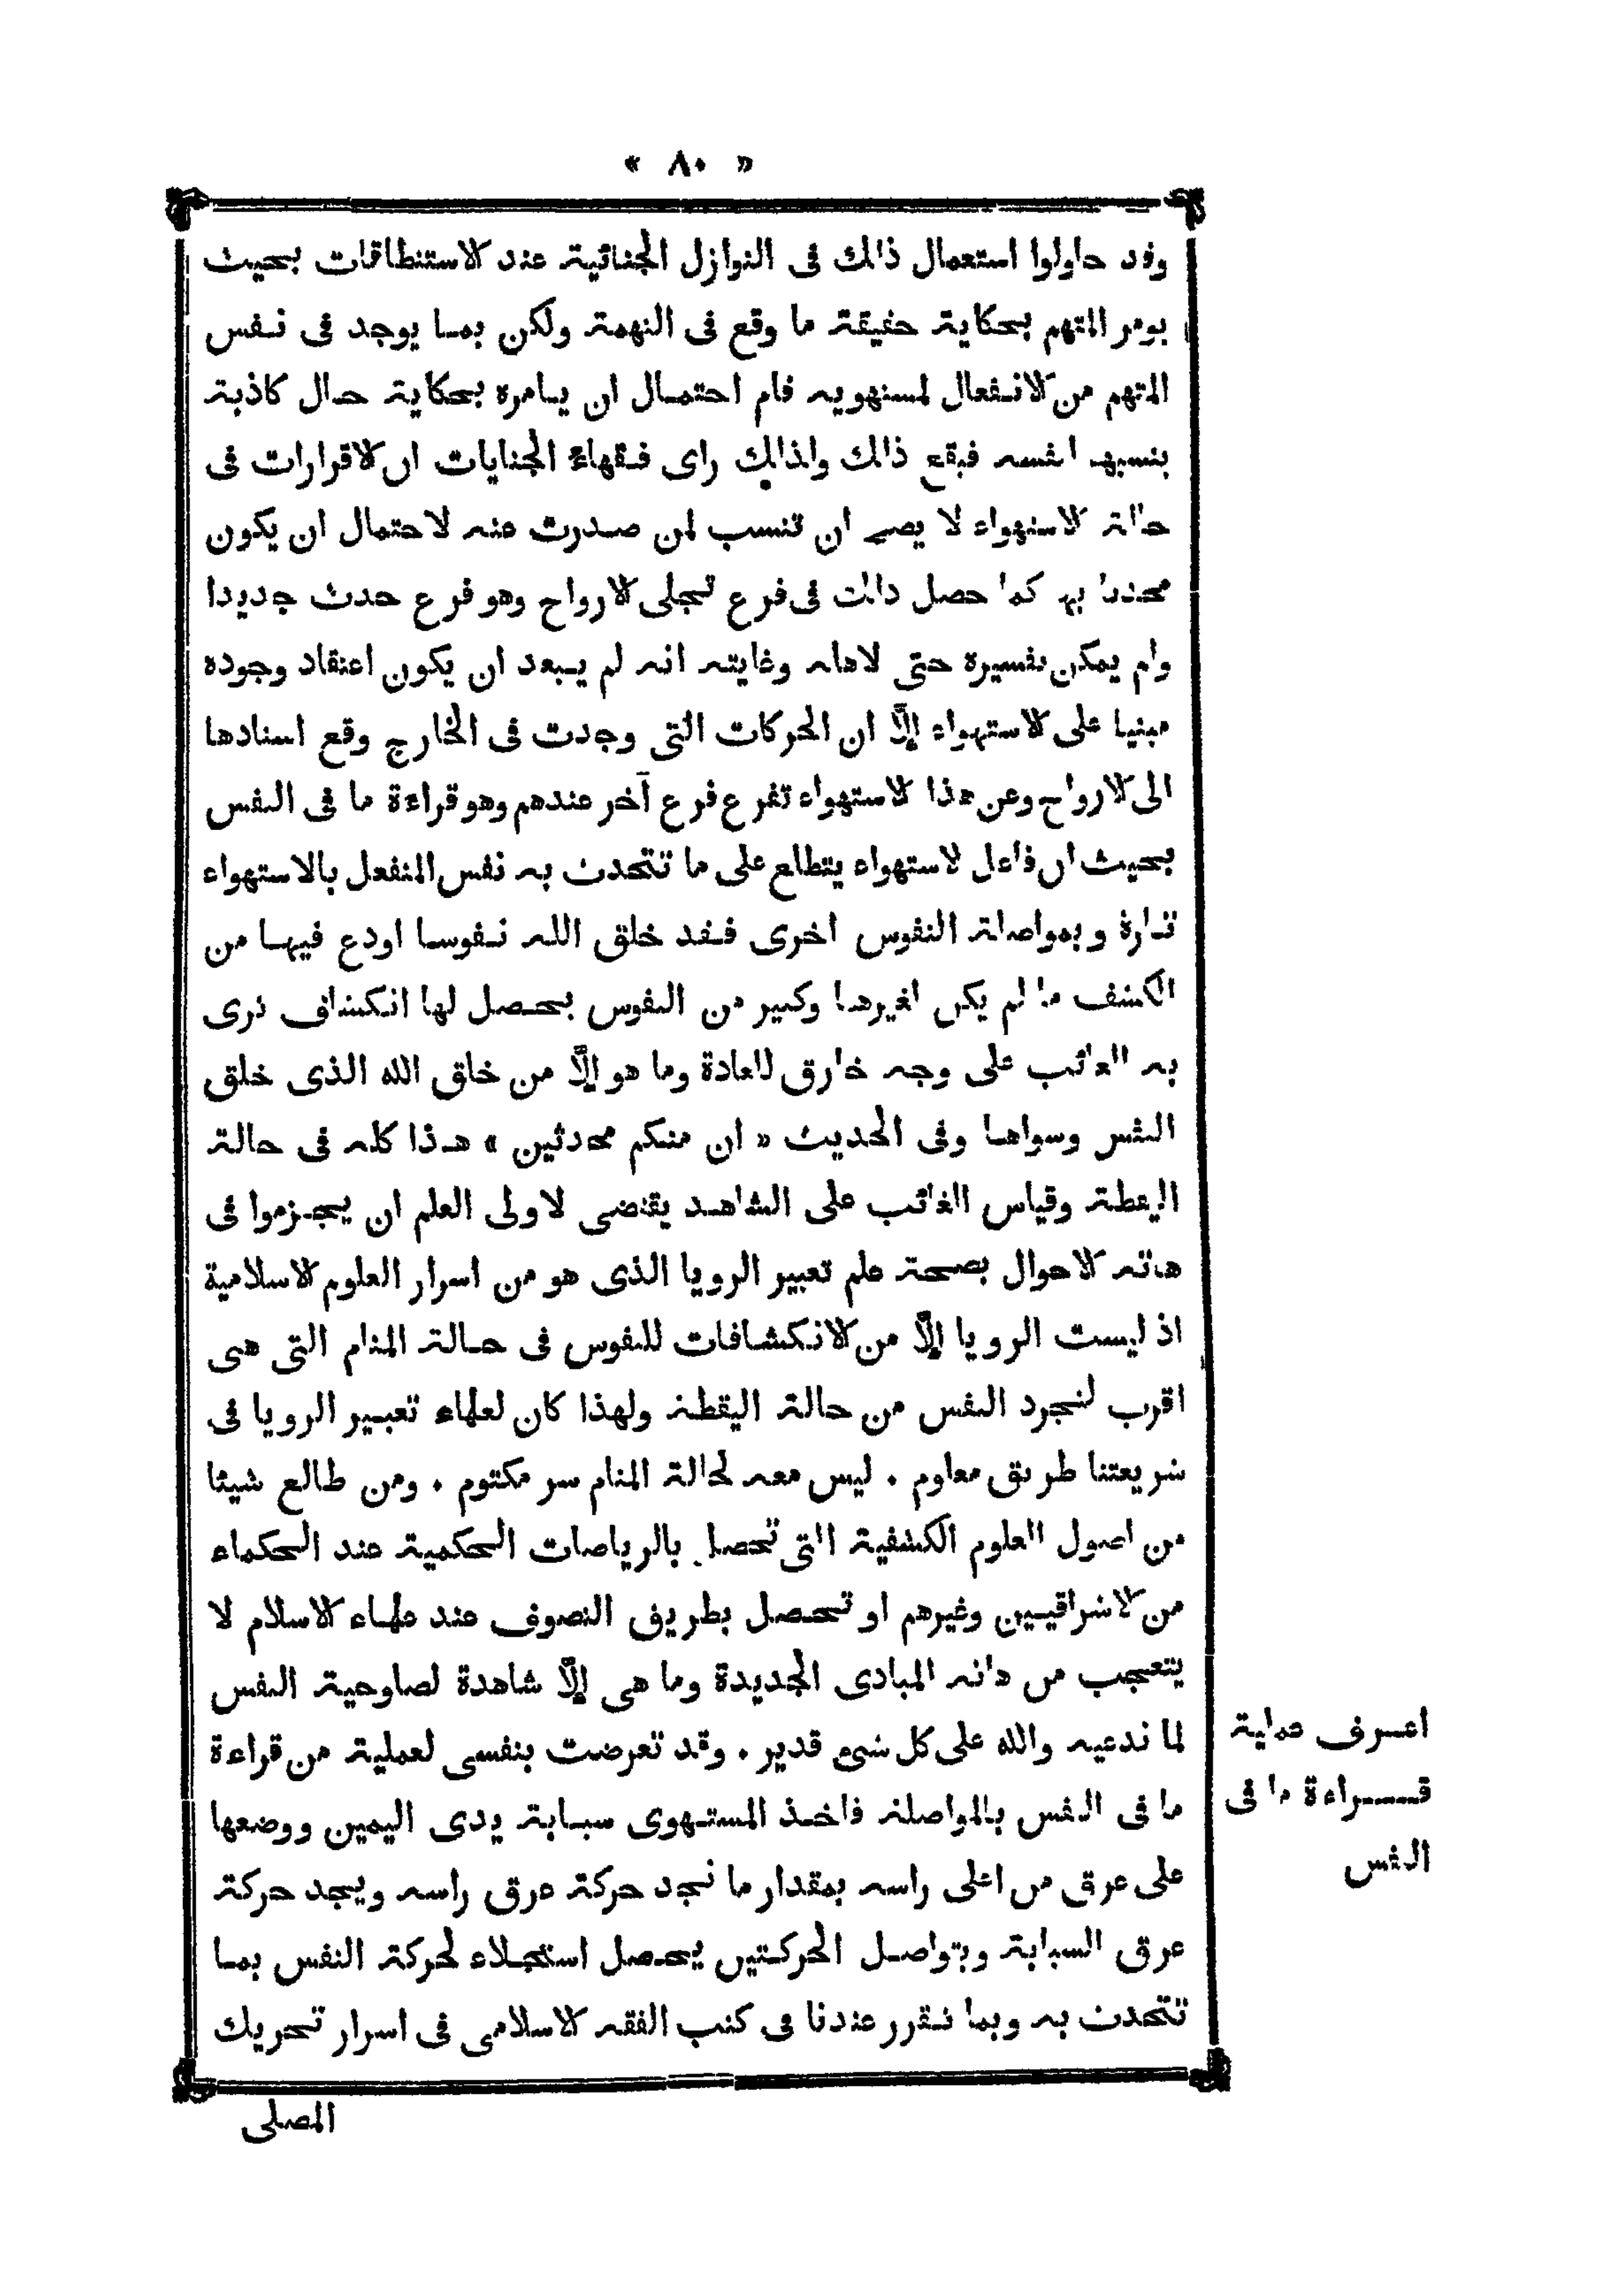 « ٨٠ »
وقد حاولوا استعمال ذالك فى النوازل الجنائية عند الاستنطاقات بحيث
يومر المتهم بحكاية حقيقة ما وقع فى التهمة ولكن بما يوجد فى نفس
المتهم من الانفعال لمستهويه قام احتمال ان يامره بحكاية حال كاذبة
ينسبها لنفسه فيقع ذالك ولذالك راى فقهاء الجنايات ان الاقرارات فى
حالة الاستهواء لا يصح ان تنسب لمن صدرت عنه لاحتمال ان يكون
محدثا بها كما حصل ذالك فى فرع تجلى الارواح وهو فرع حدث جديدا
ولم يمكن تفسيره حتى لاهله وغايته انه لم يبعد ان يكون اعتقاد وجوده
مبنيا على الاستهواء إلّا ان الحركات التى وجدت فى الخارج وقع اسنادها
الى الارواح وعن هذا الاستهواء تفرع فرع آخر عندهم وهو قراءة ما فى النفس
بحيث ان فاعل الاستهواء يتطلع على ما تتحدث به نفس المنفعل بالاستهواء
تارة وبمواصلة النفوس اخرى فقد خلق الله نفوسا اودع فيها من
الكشف ما لم يكن لغيرها وكثير من النفوس يحصل لها انكشاف ترى
به الغائب على وجه خارق للعادة وما هو إلّا من خلق الله الذى خلق
النفس وسواها وفى الحديث « ان منكم محدثين » هذا كله فى حالة
اليقظة وقياس الغائب على الشاهد يقتضى لاولى العلم ان يجزموا فى
هاته الاحوال بصحة علم تعبير الرويا الذى هو من اسرار العلوم الاسلامية
اذ ليست الرويا إلّا من الانكشافات للنفوس فى حالة المنام التى هى
اقرب لتجرد النفس من حالة اليقظة ولهذا كان لعلماء تعبير الرويا فى
شريعتنا طريق معلوم . ليس معه لحالة المنام سر مكتوم . ومن طالع شيئا
من اصول العلوم الكشفية التى تحصل بالرياضات الحكمية عند الحكماء
من الاشراقيين وغيرهم او تحصل بطريق التصوف عند علماء الاسلام لا
يتعجب من هاته المبادى الجديدة وما هى إلّا شاهدة لصلوحية النفس
لما ندعيه والله على كل شىء قدير . وقد تعرضت بنفسى لعملية من قراءة
ما فى النفس بالمواصلة فاخذ المستهوى سبابة يدى اليمين ووضعها
على عرق من اعلى راسه بمقدار ما نجد حركة عرق راسه ويجد حركة
عرق السبابة وبتواصل الحركتين يحصل استجلاء لحركة النفس بما
تتحدث به وبما تقرر عندنا فى كتب الفقه الاسلامى فى اسرار تحريك
المصلى
اعرف عملية
قراءة ما فى
النفس